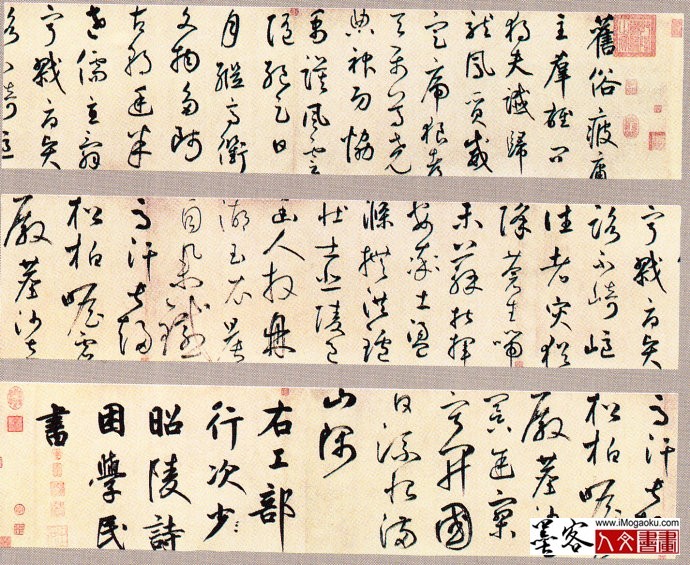 舊俗疲庸
主羣雄問
獨夫讖歸
龍鳳質威
定虎狼都
天屬尊堯
典神功協
禹謨風雲
隨絕足日
月繼高衢
文物多師
古朝廷半
老儒直詞
寧戮辱賢
路不崎嶇
寧戮辱賢
路不崎嶇
往者災猶
降蒼生喘
未蘇指揮
安率土盪
滌撫洪爐
壯士悲陵邑
幽人拜鼎
湖玉衣晨
自舉鐵
馬汗常趨
松柏瞻虛
殿塵沙立
馬汗常趨
松柏瞻虛
殿塵沙立
暝途寂
寥開國
日流恨滿
山隅
右工部
行次少
昭陵詩
困學民
書
墨客
www.iMogaoku.com
人文書畫